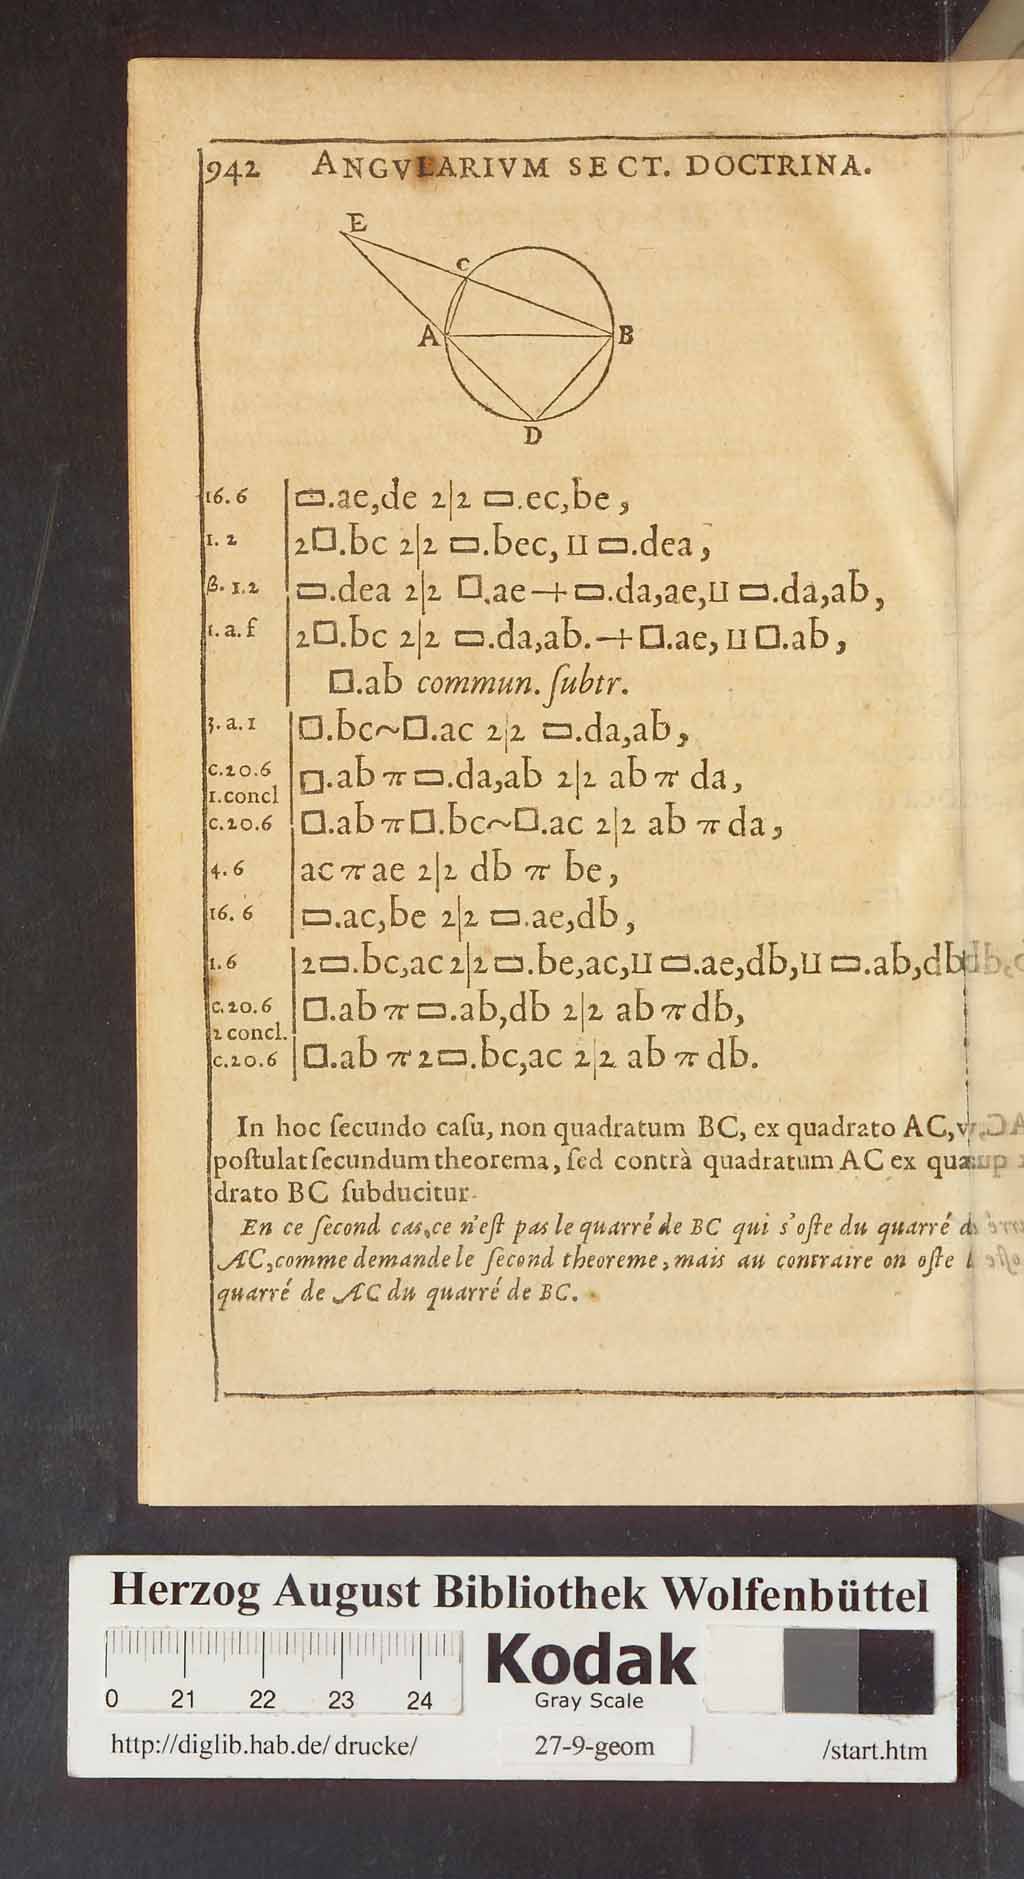 942 ANGVLARIVM SECT. DOCTRINA.
E
C
A
B
D
16. 6 ▭.ae,de 2|2 ▭.ec,be,
1. 2 2□.bc 2|2 ▭.bec, ⊔ ▭.dea,
β. 1.2 ▭.dea 2|2 □.ae+▭.da,ae,⊔ ▭.da,ab,
1. a. f 2□.bc 2|2 ▭.da,ab.+□.ae, ⊔ □.ab,
□.ab commun. ſubtr.
3. a. 1 □.bc~□.ac 2|2 ▭.da,ab,
c.20.6 □.ab π ▭.da,ab 2|2 ab π da,
1.concl
c.20.6 □.ab π □.bc~□.ac 2|2 ab π da,
4. 6 ac π ae 2|2 db π be,
16. 6 ▭.ac,be 2|2 ▭.ae,db,
1.6 2▭.bc,ac 2|2 ▭.be,ac,⊔ ▭.ae,db,⊔ ▭.ab,db
c.20.6 □.ab π ▭.ab,db 2|2 ab π db,
2 concl.
c.20.6 □.ab π 2▭.bc,ac 2|2 ab π db.
In hoc ſecundo caſu, non quadratum BC, ex quadrato AC,
poſtulat ſecundum theorema, ſed contrà quadratum AC ex qua-
drato BC ſubducitur.
En ce ſecond cas, ce n'eſt pas le quarré de BC qui s'oſte du quarré
AC, comme demande le ſecond theoreme, mais au contraire on oſte
quarré de AC du quarré de BC.
Herzog August Bibliothek Wolfenbüttel
0 21 22 23 24
Kodak
Gray Scale
http://diglib.hab.de/drucke/ 27-9-geom /start.htm